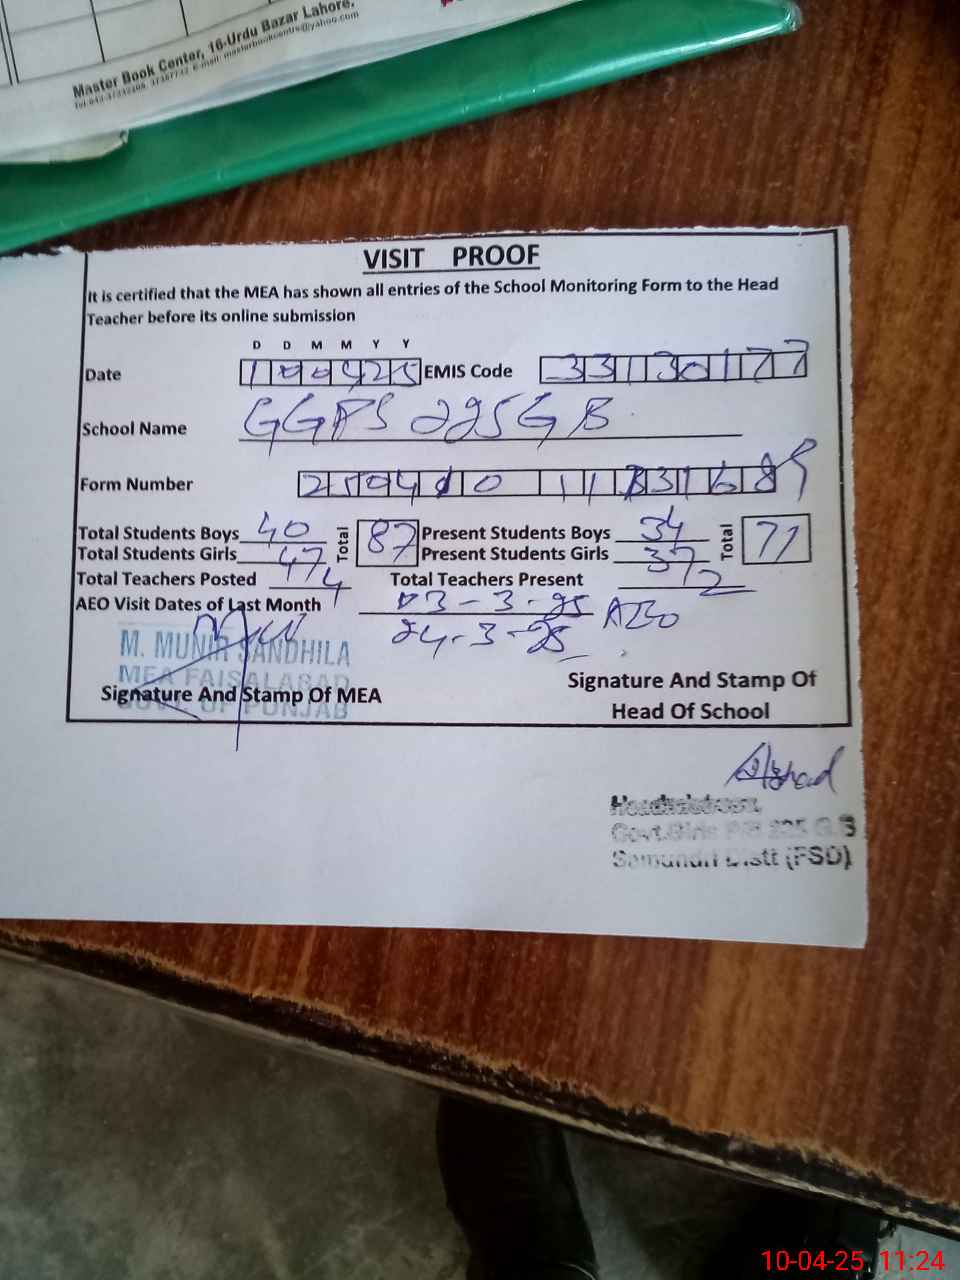 Master Book Center, 16-Urdu Bazar Lahore.
VISIT PROOF
It is certified that the MEA has shown all entries of the School Monitoring Form to the Head
Teacher before its online submission
D D M M Y Y
Date 100425 EMIS Code 33130177
School Name GGPS 225GB
Form Number
Total Students Boys 40 Total 87 Present Students Boys 34 Total 71
Total Students Girls 47 Present Students Girls 37
Total Teachers Posted 4 Total Teachers Present 2
AEO Visit Dates of Last Month 03-3-25
24-3-25
M. MUNIR SANDHILA
MEA FAISALABAD
GOVT. OF PUNJAB
Signature And Stamp Of MEA
Signature And Stamp Of
Head Of School
Headmistress
Govt.Girls P/S 225 G.B
Samundri Distt (FSD)
10-04-25 11:24